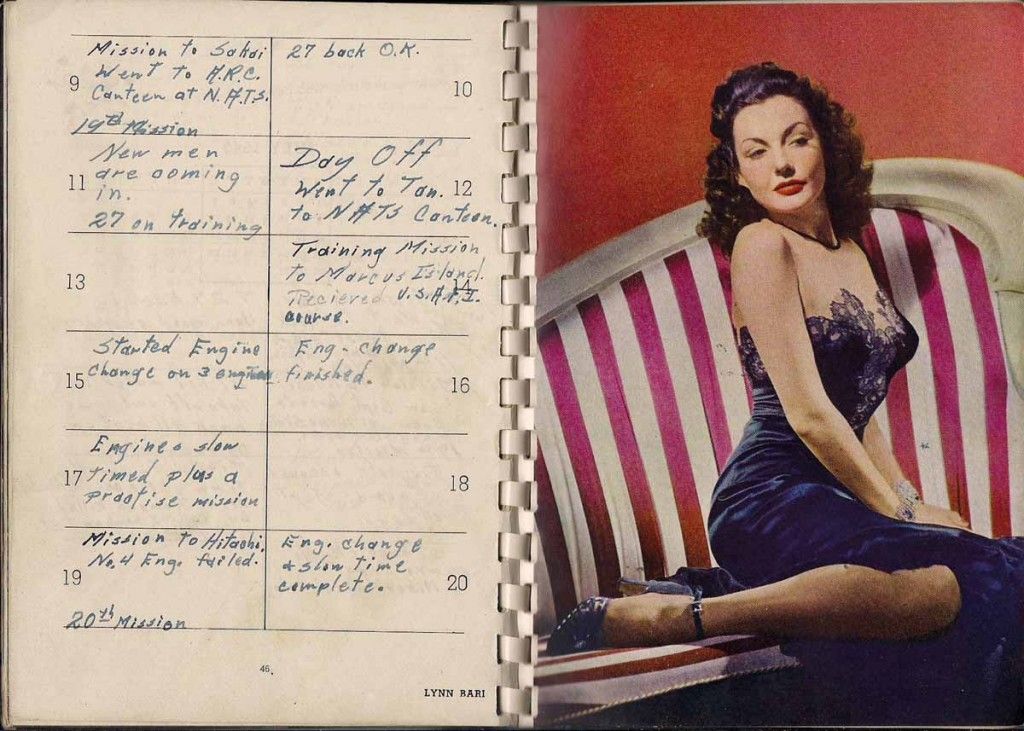 Mission to Sakai
Went to A.R.C.
9
Canteen at N.A.T.S.
19th Mission
27 back O.K.
10
New men
are coming
11
in.
27 on training
Day Off
Went to Tan.
12
to NATS Canteen.
13
Training Mission
to Marcus Island.
14
Recieved U.S.A.F.I.
course.
Started Engine
15
Change on 3 engines
Eng. change
finished.
16
Engine slow
17
timed plus a
practise mission
18
Mission to Hitachi.
No. 4 Eng. failed.
19
20th Mission
Eng. change
& slow time
complete.
20
46.
LYNN BARI